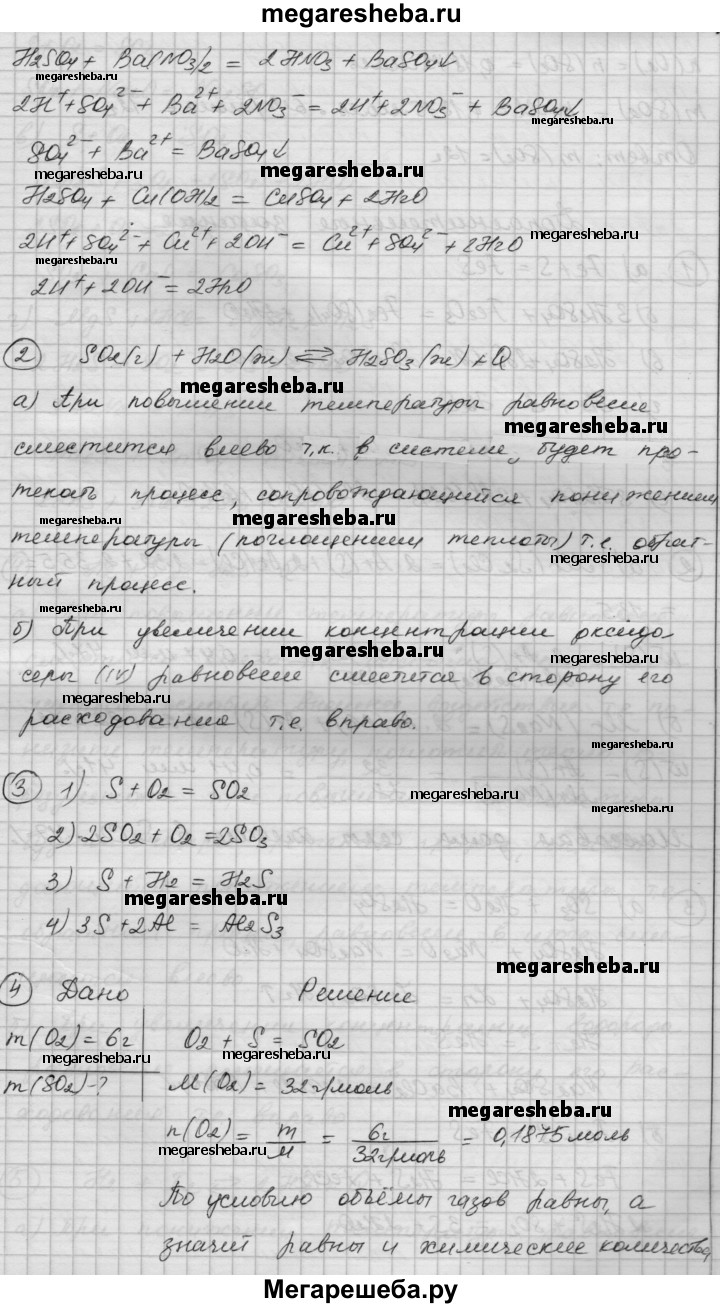 megaresheba.ru
H₂SO₄ + Ba(NO₃)₂ = 2HNO₃ + BaSO₄↓
megaresheba.ru
2H⁺ + SO₄²⁻ + Ba²⁺ + 2NO₃⁻ = 2H⁺ + 2NO₃⁻ + BaSO₄↓
megaresheba.ru
SO₄²⁻ + Ba²⁺ = BaSO₄↓
megaresheba.ru
megaresheba.ru
H₂SO₄ + Cu(OH)₂ = CuSO₄ + 2H₂O
megaresheba.ru
2H⁺ + SO₄²⁻ + Cu²⁺ + 2OH⁻ = Cu²⁺ + SO₄²⁻ + 2H₂O
megaresheba.ru
2H⁺ + 2OH⁻ = 2H₂O
2 SO₂(г) + H₂O(ж) ⇄ H₂SO₃(ж) + Q
megaresheba.ru
а) При повышении температуры равновесие
megaresheba.ru
сместится влево т.к. в системе, будет про-
текать процесс, сопровождающийся понижением
megaresheba.ru
megaresheba.ru
температуры (поглощением теплоты) т.е. обрат-
megaresheba.ru
ный процесс.
megaresheba.ru
б) При увеличении концентрации оксида
megaresheba.ru
серы (IV) равновесие сместится в сторону его
megaresheba.ru
расходования т.е. вправо.
megaresheba.ru
3 1) S + O₂ = SO₂
megaresheba.ru
megaresheba.ru
2) 2SO₂ + O₂ = 2SO₃
3) S + H₂ = H₂S
megaresheba.ru
4) 3S + 2Al = Al₂S₃
megaresheba.ru
4 Дано Решение
m(O₂) = 6г O₂ + S = SO₂
megaresheba.ru
megaresheba.ru
m(SO₂) - ? M(O₂) = 32г/моль
megaresheba.ru
n(O₂) = m/M = 6г/32г/моль = 0,1875 моль
megaresheba.ru
По условию объёмы газов равны, а
megaresheba.ru
значит равны и химические количества,
Мегарешеба.ру